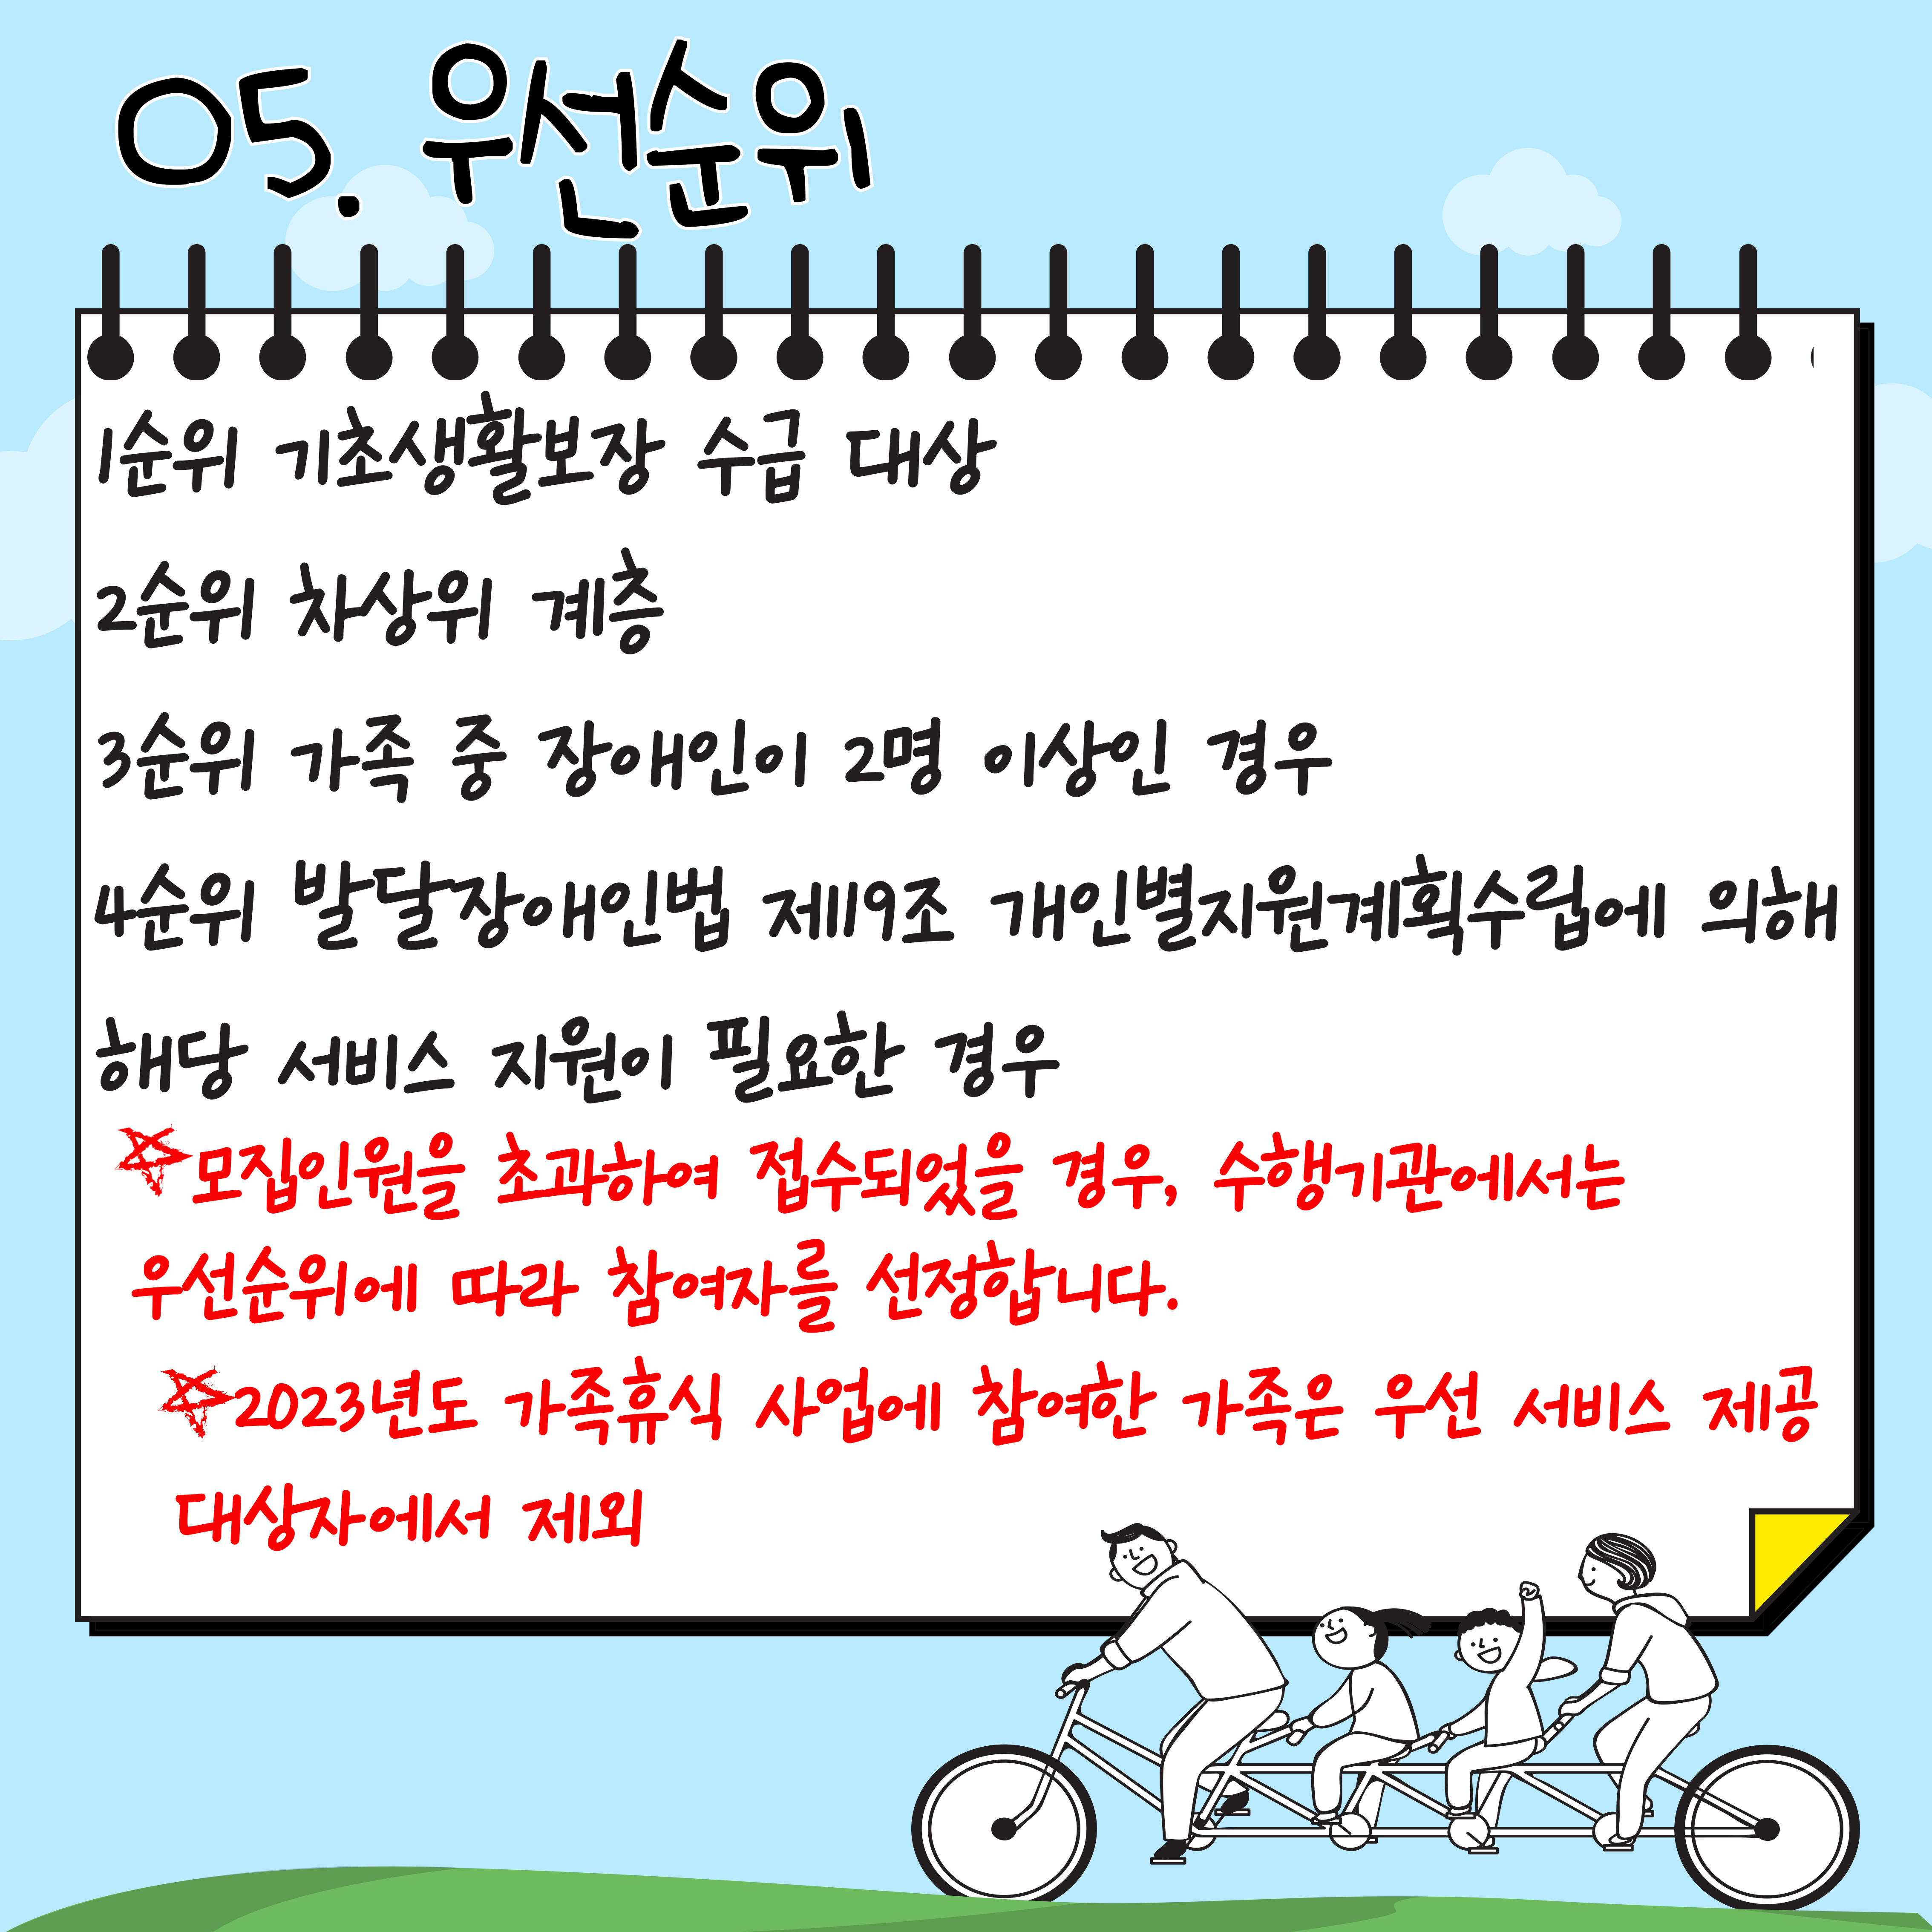 05. 우선순위
1순위 기초생활보장 수급 대상
2순위 차상위 계층
3순위 가족 중 장애인이 2명 이상인 경우
4순위 발달장애인법 제19조 개인별지원계획수립에 의해
해당 서비스 지원이 필요한 경우
모집인원을 초과하여 접수되었을 경우, 수행기관에서는
우선순위에 따라 참여자를 선정합니다.
2023년도 가족휴식 사업에 참여한 가족은 우선 서비스 제공
대상자에서 제외